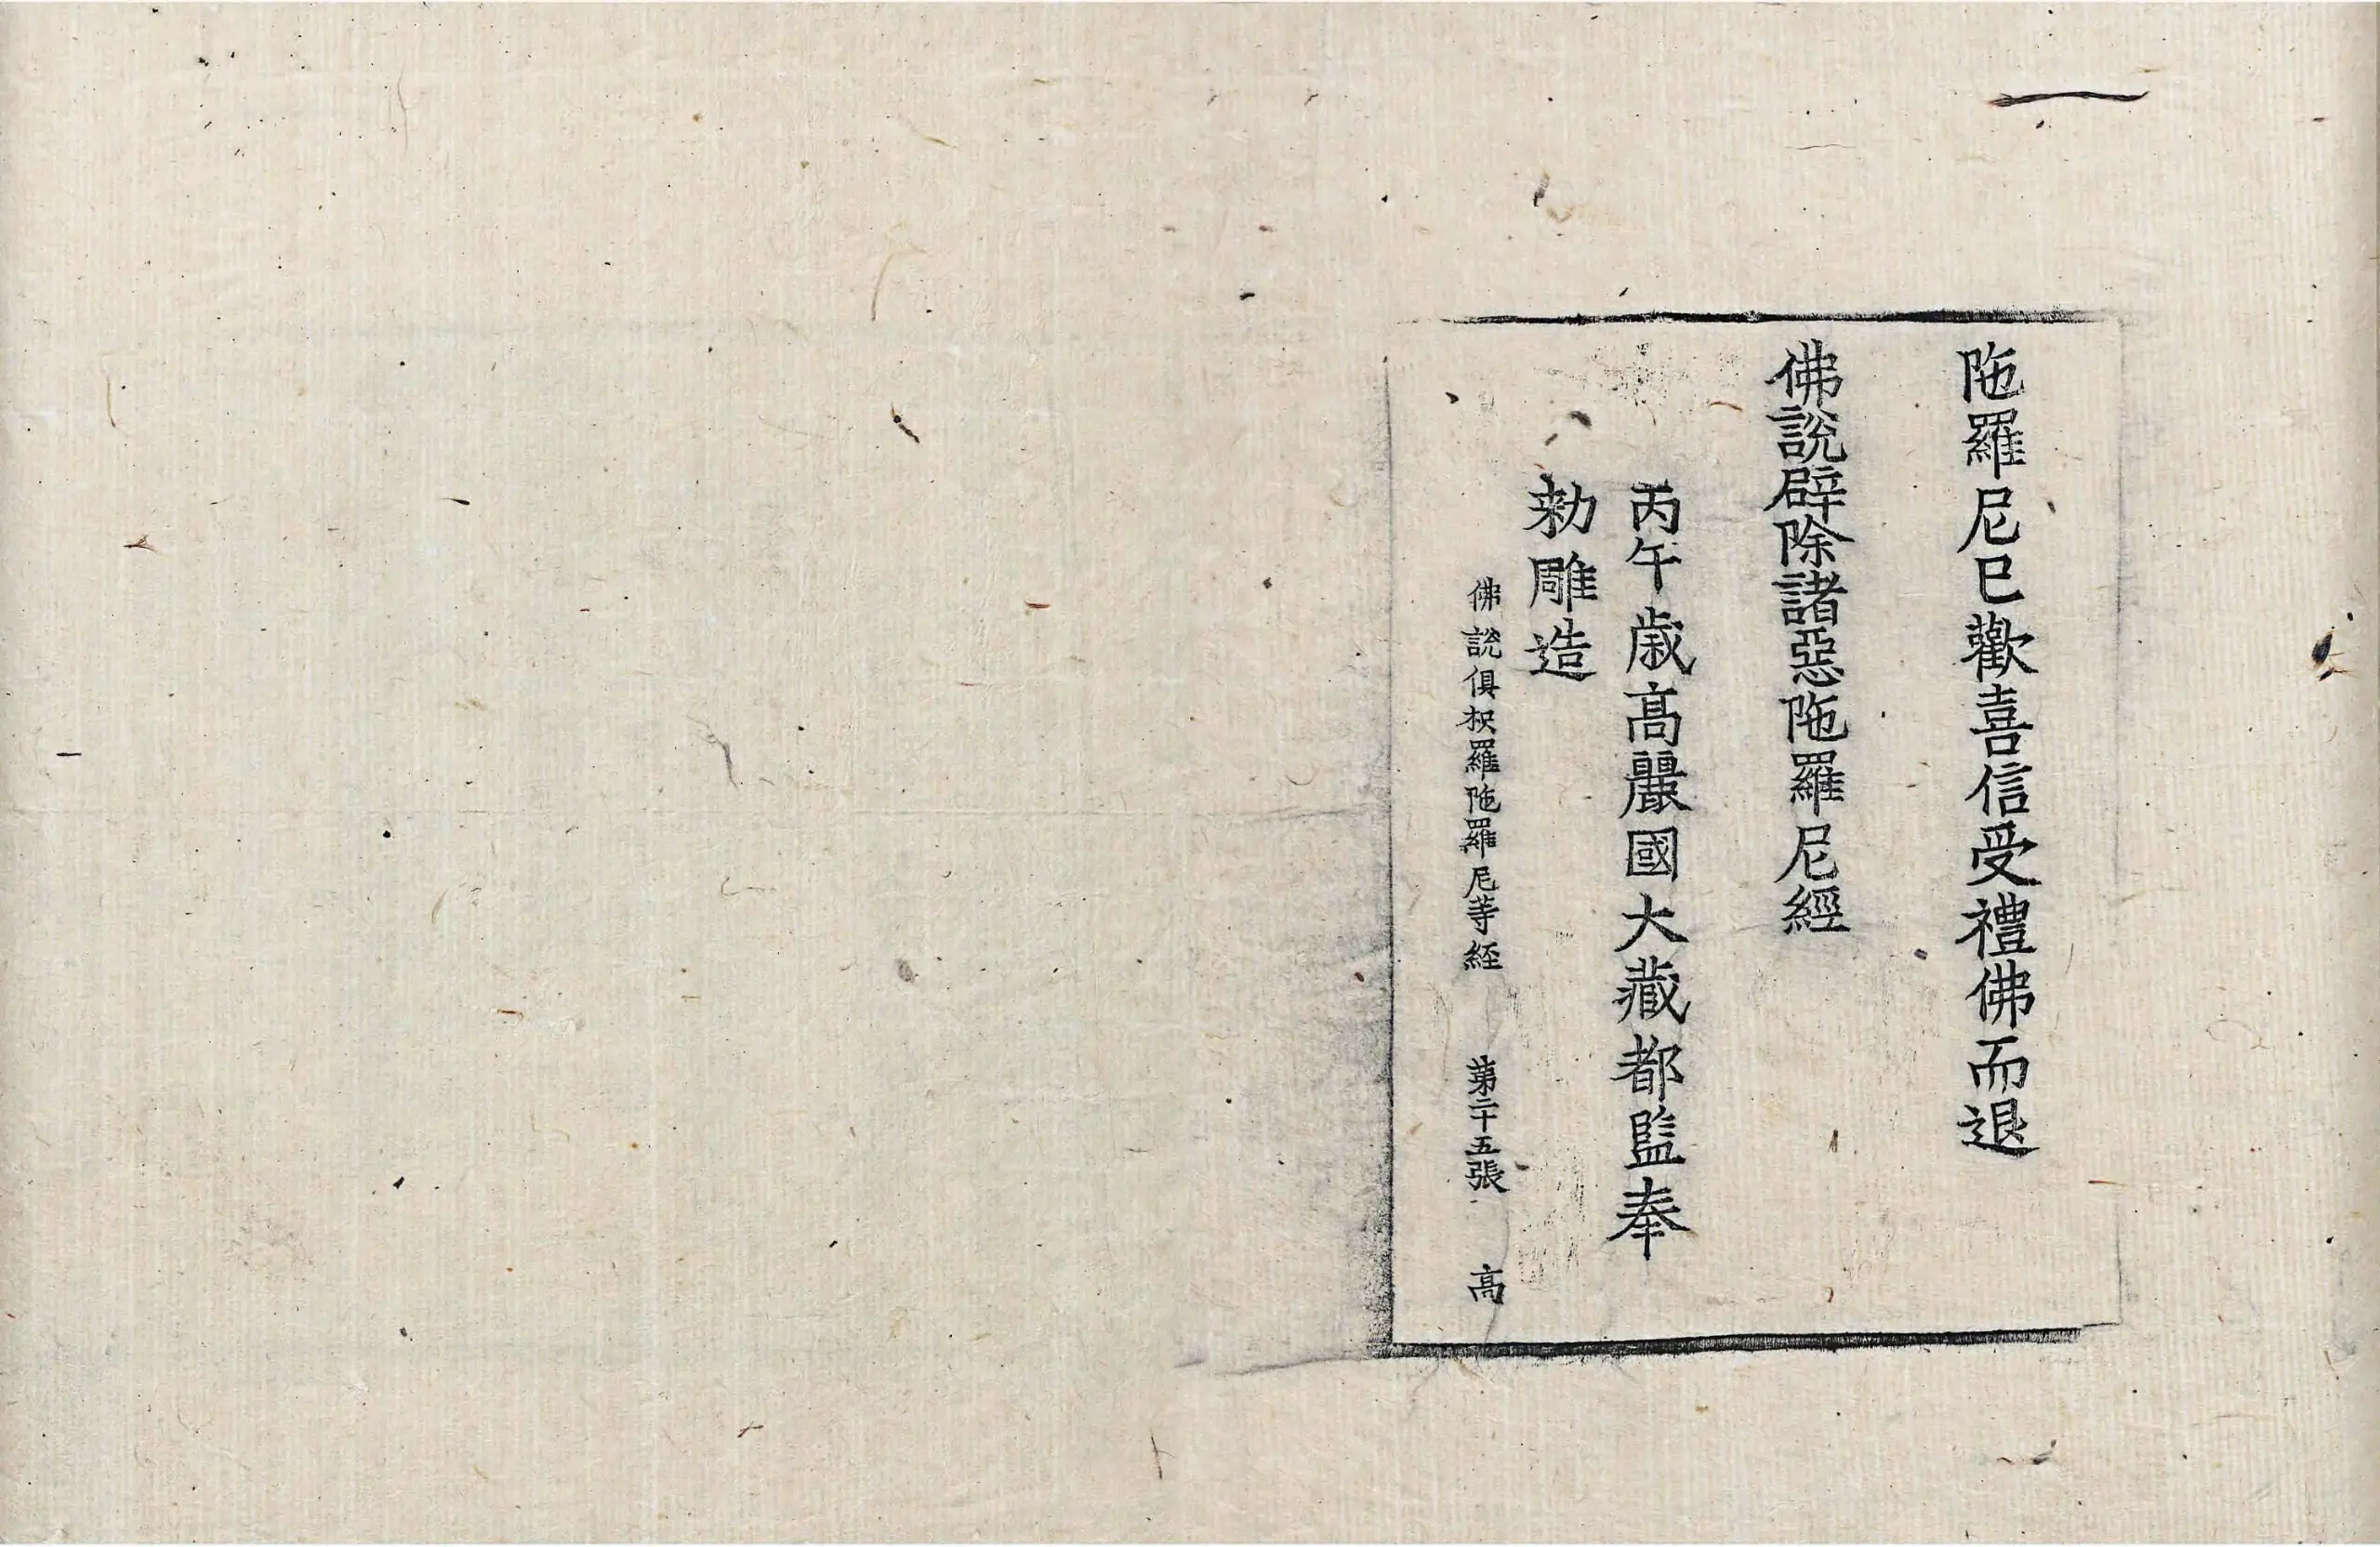 陁羅尼已歡喜信受禮佛而退
佛說辟除諸惡陁羅尼經
丙午歲高麗國大藏都監奉
勑雕造
佛說俱枳羅陁羅尼等經 第二十五張 高